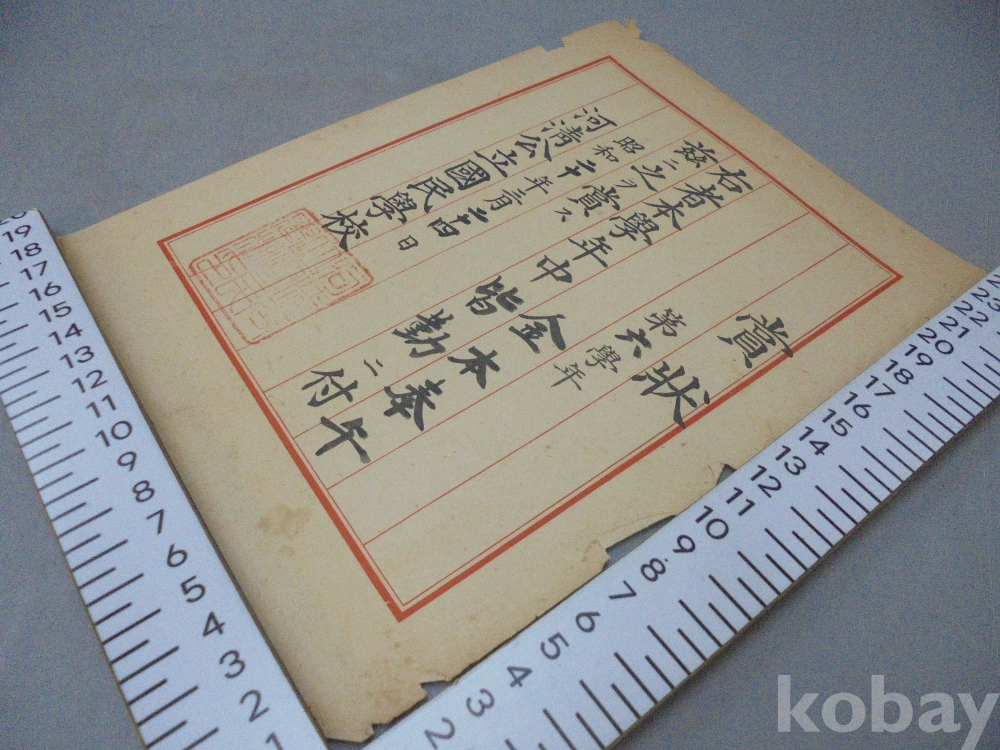 賞狀
第六學年
金本奉午
右者本學年中皆勤ニ付
茲ニ之ヲ賞ス
昭和二十年三月二十四日
河淸公立國民學校
19 18 17 16 15 14 13 12 11 10 9 8 7 6 5 4 3 2 1
2 3 4 5 6 7 8 9 10 11 12 13 14 15 16 17 18 19 20 21 22 23
kobay